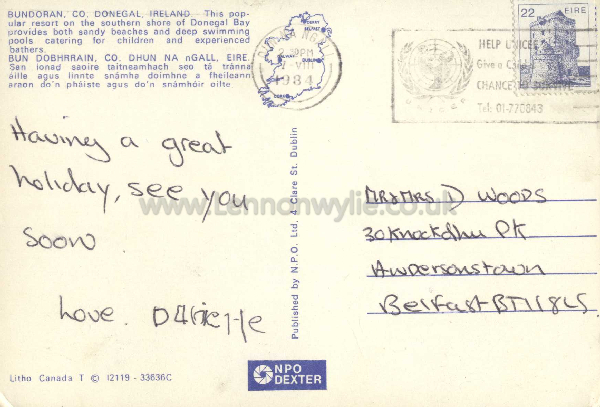 BUNDORAN, CO. DONEGAL, IRELAND — This pop-
ular resort on the southern shore of Donegal Bay
provides both sandy beaches and deep swimming
pools catering for children and experienced
bathers.
BUN DOBHRAIN, CO. DHUN NA nGALL, EIRE.
San ionad saoire taitneamhach seo tá tránna
áille agus linnte snámha doimhne a fheileann
araon do'n pháiste agus do'n snámhóir oilte.
2 30PM
VIII
1984
HELP UNICEF
Give a
CHANCE TO SURVIVE
Tel: 01-770843
22 EIRE
Having a great
holiday, see you
soon
Love.
Published by N.P.O. Ltd. 4 Clare St. Dublin
MR & MRS D WOODS
30 Knockdhu PK
Andersonstown
Belfast BT11 8LS
www.Lennonwylie.co.uk
Litho Canada T © 12119 - 33636C
NPO
DEXTER